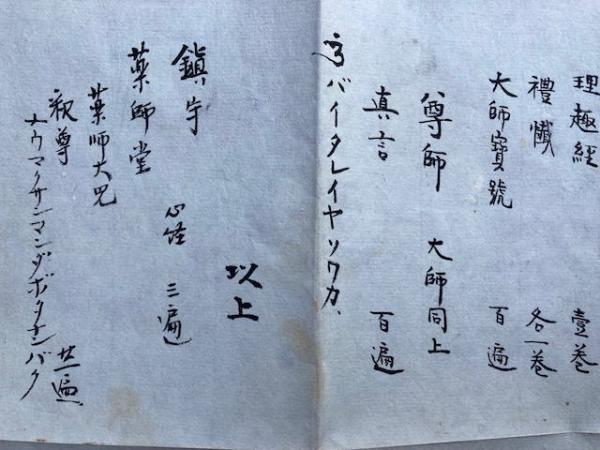 理趣経 壹巻
禮懺 各一巻
大師寳號 百遍
尊師 大師同上
真言 百遍
バイタレイヤソワカ、
以上
鎮守 心経 三遍
薬師堂
薬師大咒
釈尊 廿一遍
ナウマクサンマンダボタナンバク